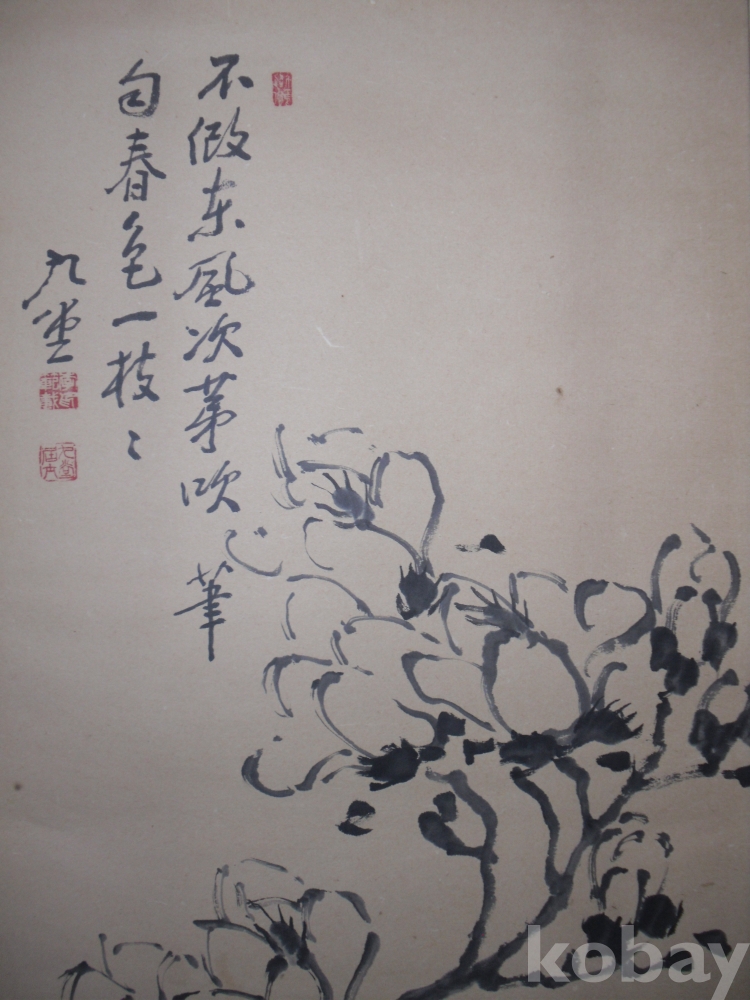 不假東風次第吹筆
匀春色一枝〻
九堂
kobay